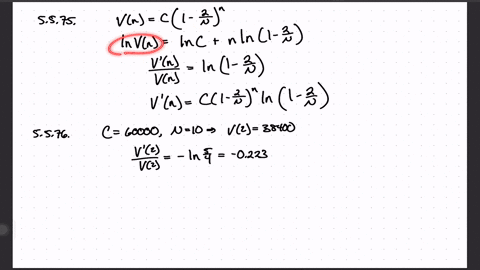 5.5.75. V(n) = C(1 - 2/N)^n
ln V(n) = ln C + n ln(1 - 2/N)
V'(n)/V(n) = ln(1 - 2/N)
V'(n) = C(1 - 2/N)^n ln(1 - 2/N)
5.5.76. C = 60000, N = 10 ⇒ V(2) = 38400
V'(2)/V(2) = - ln 5/4 = -0.223